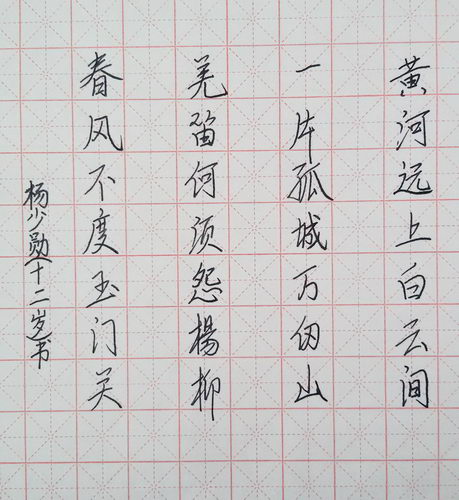 黄河远上白云间
一片孤城万仞山
羌笛何须怨楊柳
春风不度玉门关
杨少勋(十二岁)书